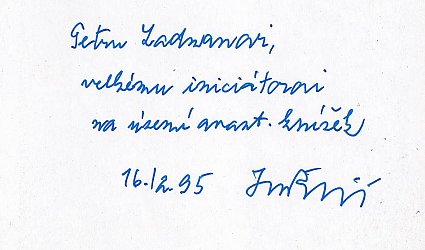 Petru Ladmanovi,
velkému iniciátorovi
na území amat. knížek
16.12.95